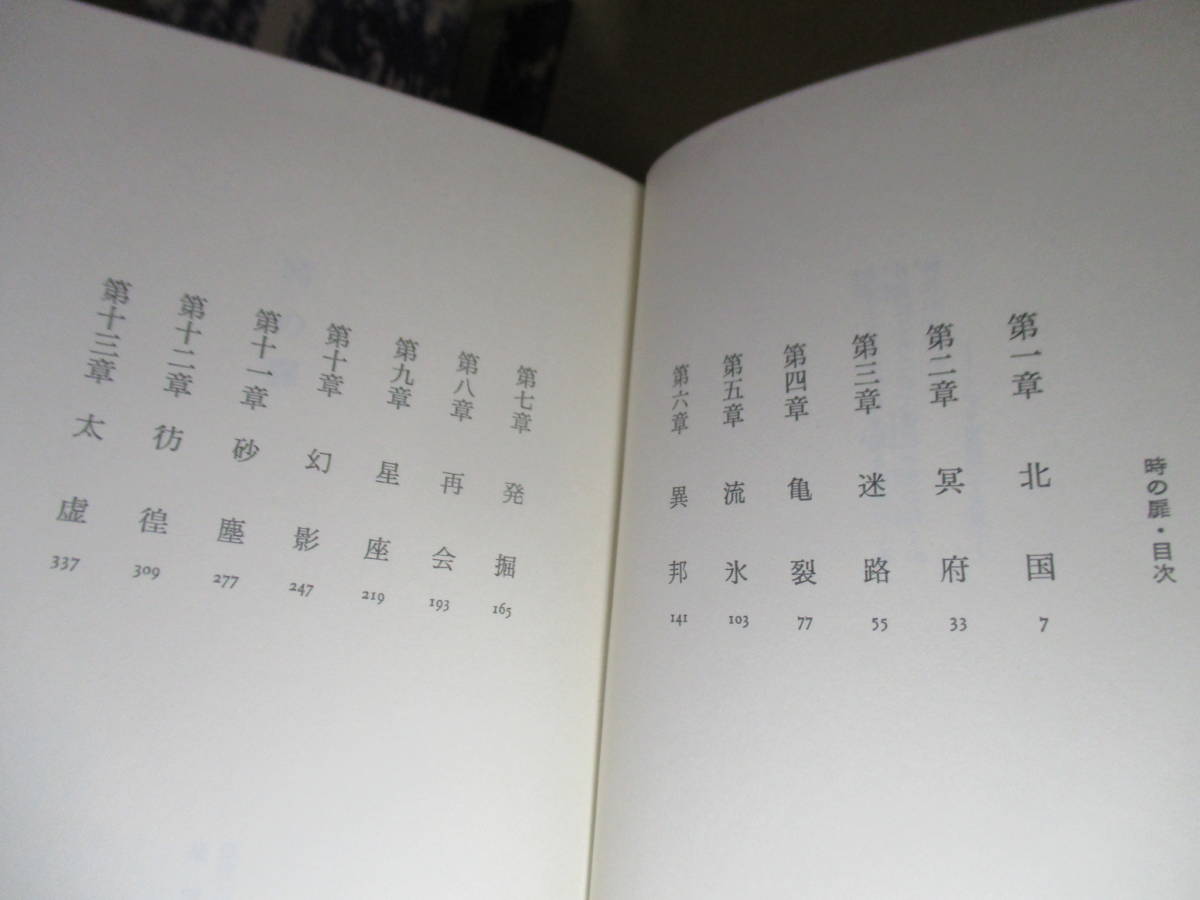 時の扉・目次
第一章 北国 7
第二章 冥府 33
第三章 迷路 55
第四章 亀裂 77
第五章 流氷 103
第六章 異邦 141
第七章 発掘 165
第八章 再会 193
第九章 星座 219
第十章 幻影 247
第十一章 砂塵 277
第十二章 彷徨 309
第十三章 太虚 337